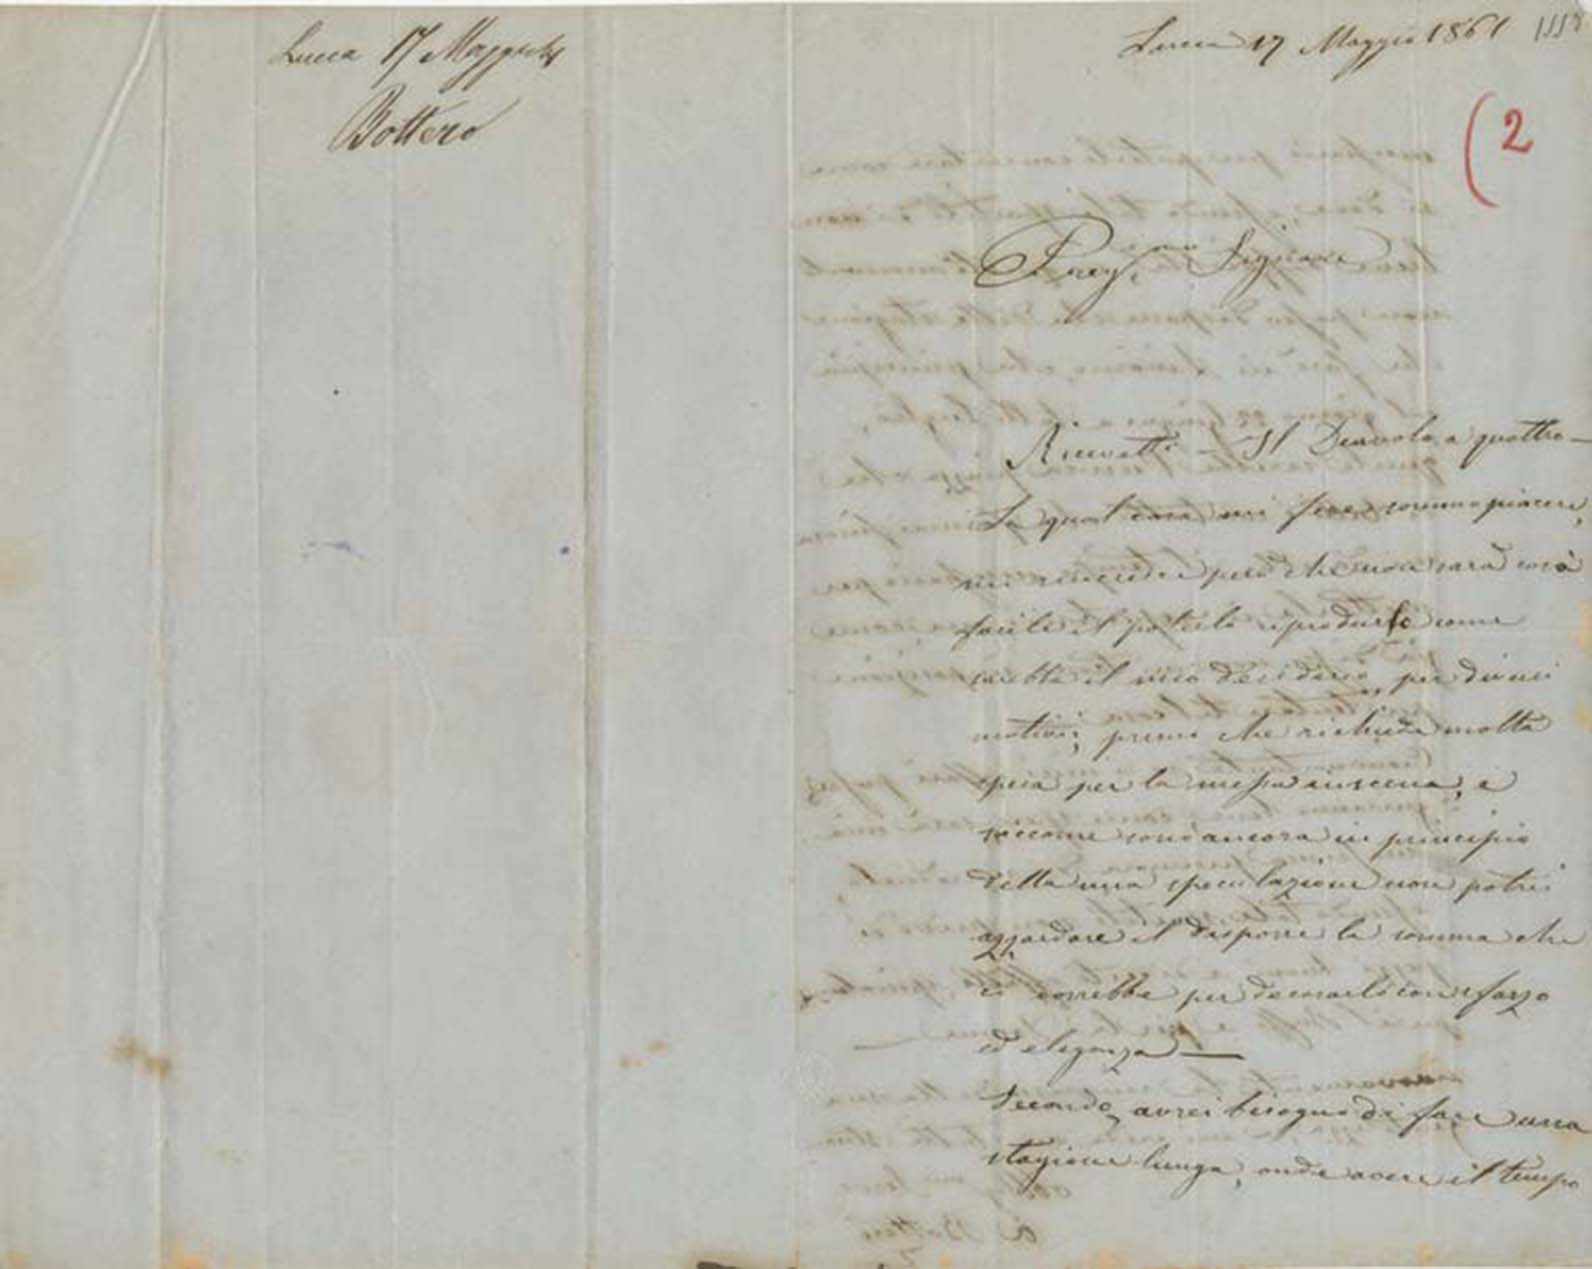 Lucca 17 Maggio 61
Bottero
Lucca 17 Maggio 1861
(2
Preg.mo Signore
Ricevetti – Il Diavolo a quattro –
La qual cosa mi fece sommo piacere,
mi rincresce però che non sarà così
facile il poterlo riprodurlo come
sarebbe il mio desiderio, per diversi
motivi; primo che richiede molta
spesa per la messa in scena, e
siccome sono ancora in principio
della mia speculazione non potrei
azzardare il disporre la somma che
ci vorrebbe per decorarlo con sfarzo
ed eleganza —
Secondo, avrei bisogno di fare una
stagione lunga, onde avere il tempo